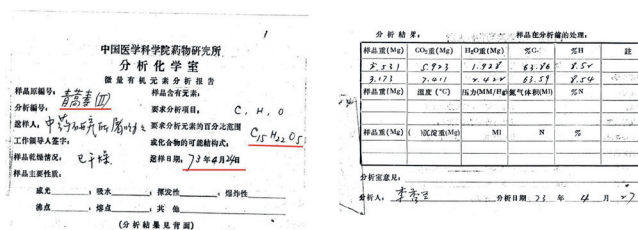 中国医学科学院药物研究所
分析化学室
微量有机元素分析报告
样品原编号：青蒿素(II) 样品含有元素：
分析编号： 要求分析项目： C, H, O
送样人： 中药研究所 要求分析元素的百分比范围
工作领导人签字： 或化合物的可能结构式： C15H22O5
样品乾燥情况： 已干燥 送样日期： 73年4月24日
样品主要性质：
感光 ；吸水 ；挥发性 ；爆炸性
沸点 ；熔点 ；其他
(分析结果见背面)
分析结果： 样品在分析前的处理：
样品重(Mg) CO2重(Mg) H2O重(Mg) %C. %H 附註
5.531 5.923 1.928 63.86 8.52
3.173 7.411 2.422 63.59 8.54
样品重(Mg) 温度(°C) 压力(MM/Hg) 氮气体积(Ml) %N
样品重(Mg) ( )沉淀重(Mg) Ml N %
分析室意见：
分析人： 李秀兰 分析日期 73 年 4 月 27